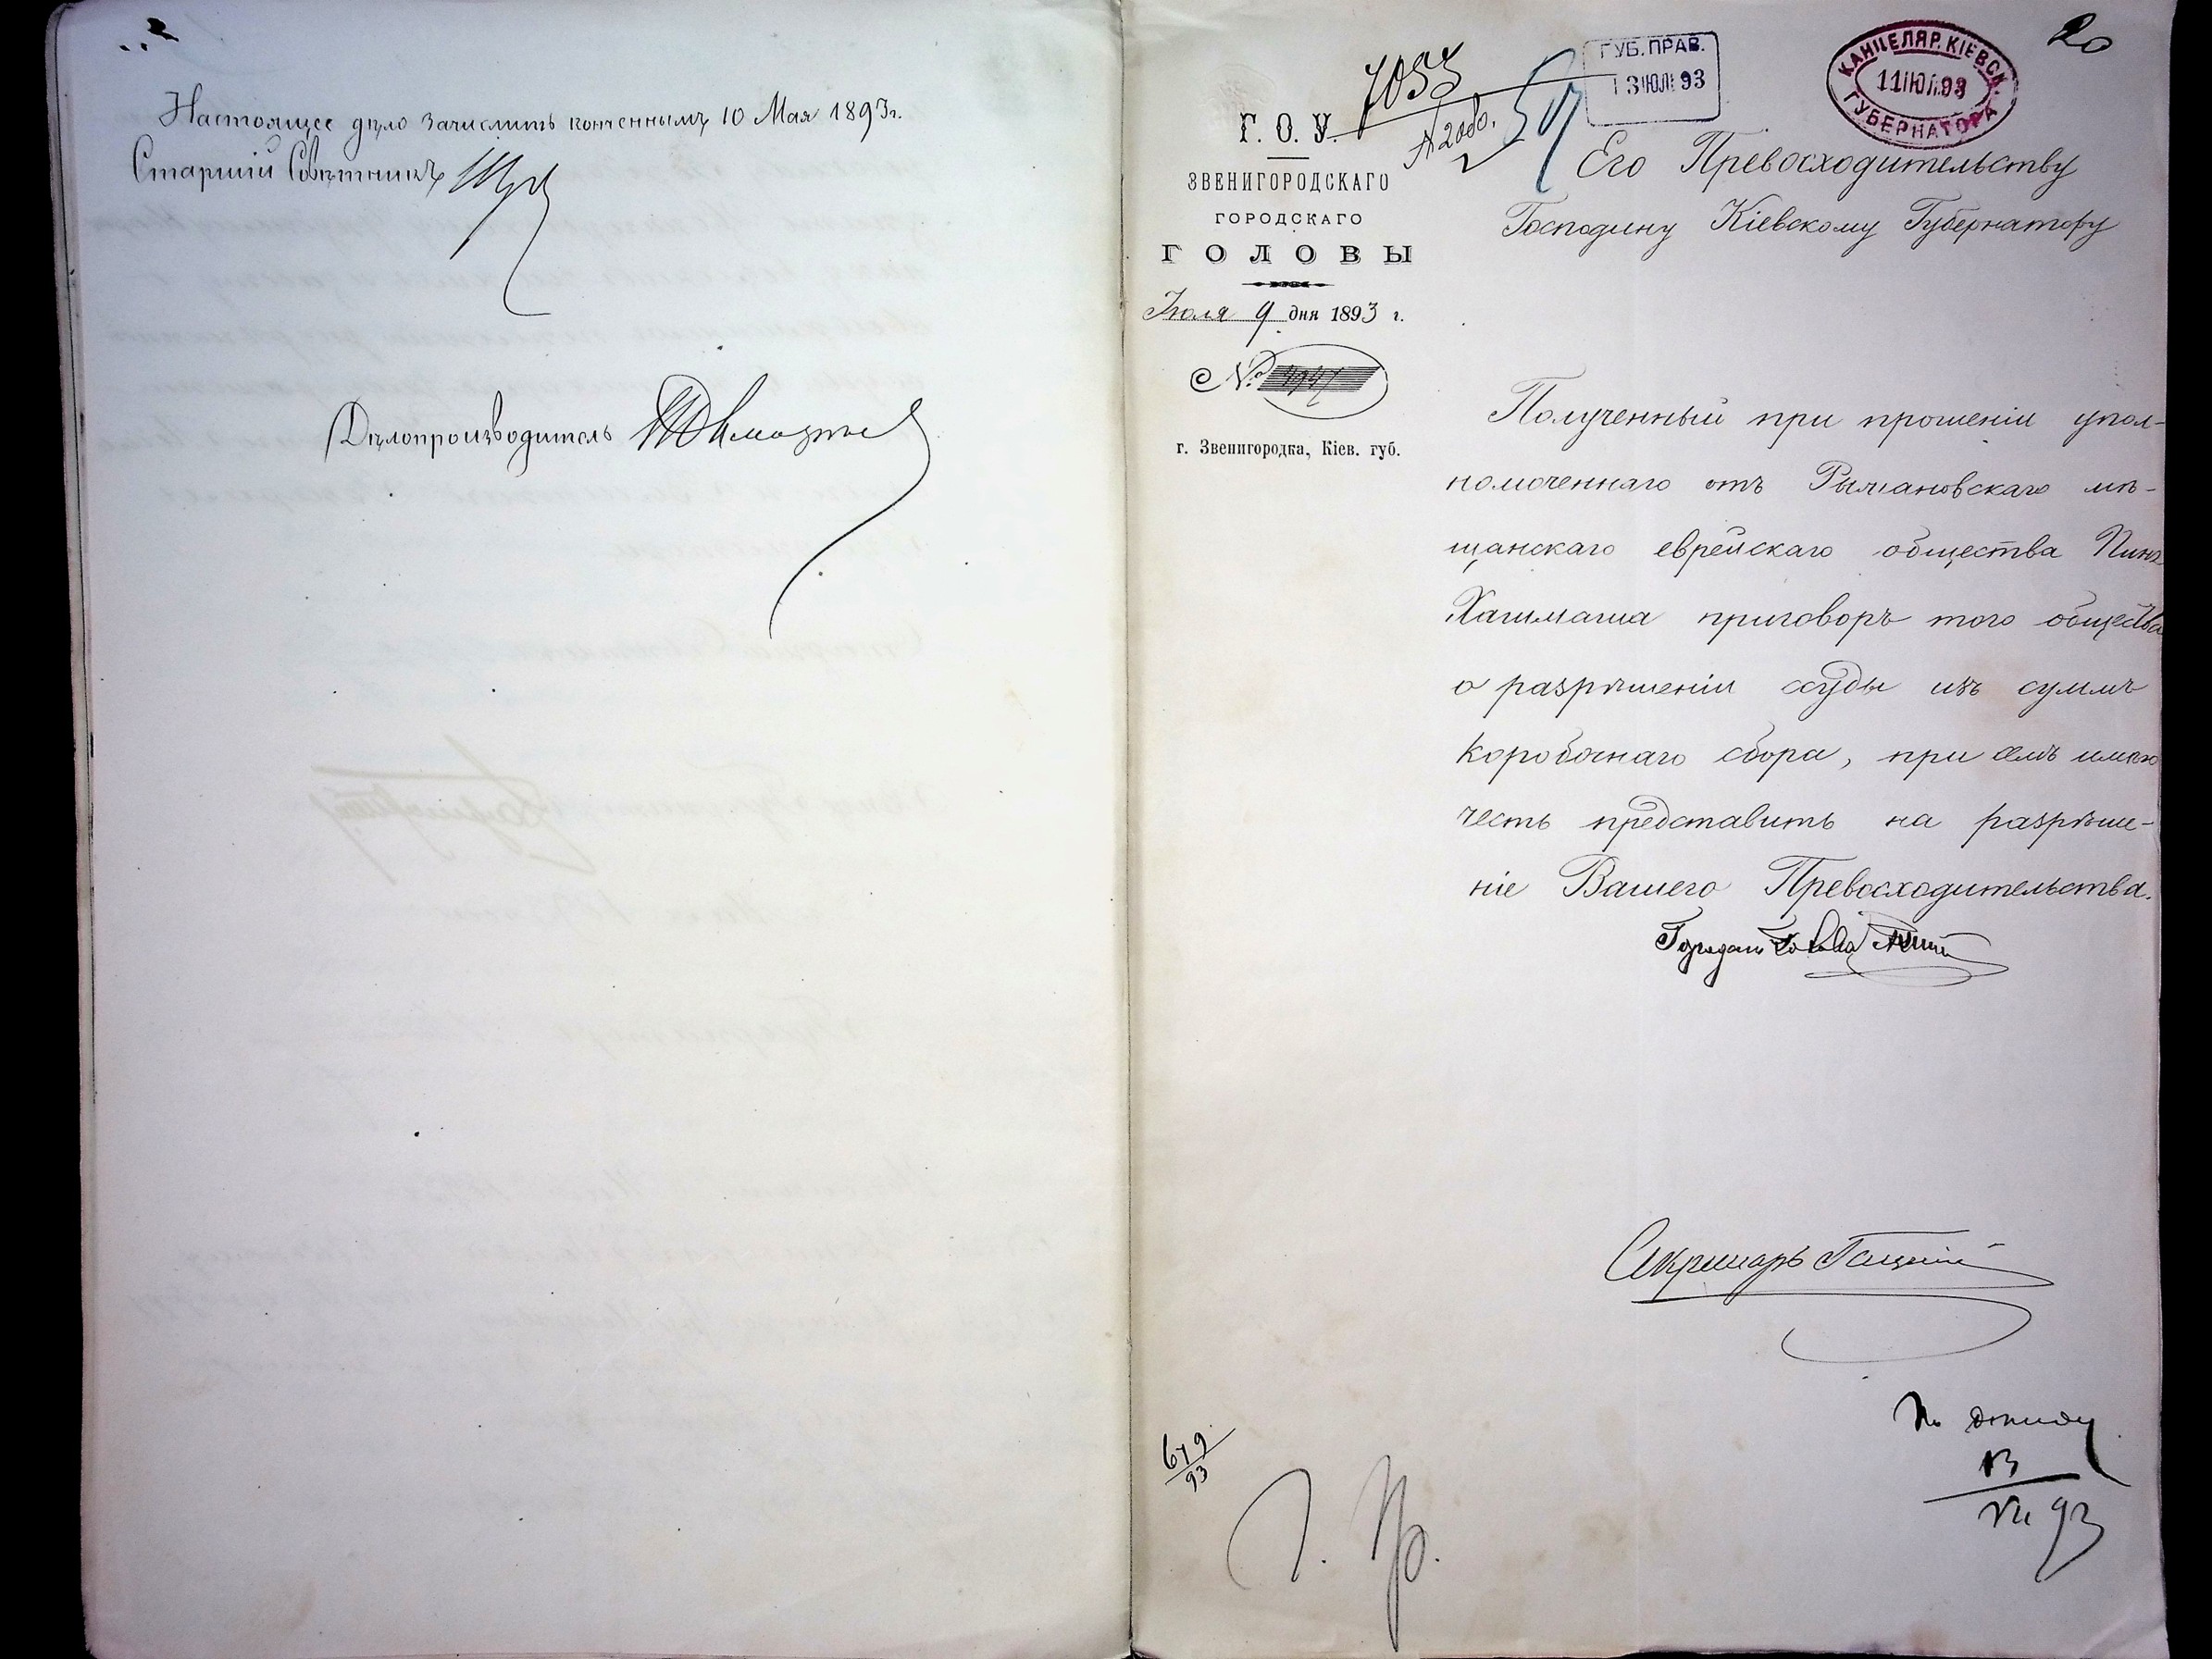 Настоящее дѣло зачислить конченнымъ 10 Мая 1893 г.
Старшій Совѣтникъ
Дѣлопроизводитель
20
КАНЦЕЛЯР. КІЕВСК. ГУБЕРНАТОРА
11 ІЮЛ. 93
ГУБ. ПРАВ.
13 ІЮЛ 93
7053
Г. О. У.
ЗВЕНИГОРОДСКАГО
ГОРОДСКАГО
ГОЛОВЫ
Іюля 9 дня 1893 г.
№
г. Звенигородка, Кіев. губ.
Его Превосходительству
Господину Кіевскому Губернатору
Полученный при прошеніи упол-
номоченнаго отъ Рыжановскаго мѣ-
щанскаго еврейскаго общества
приговоръ того общества
о разрѣшеніи ссуды изъ суммъ
коробочнаго сбора, при семъ имѣю
честь представить на разрѣше-
ніе Вашего Превосходительства.
Городской Голова
Секретарь
679/93
Г. Пр.
13
VII 93